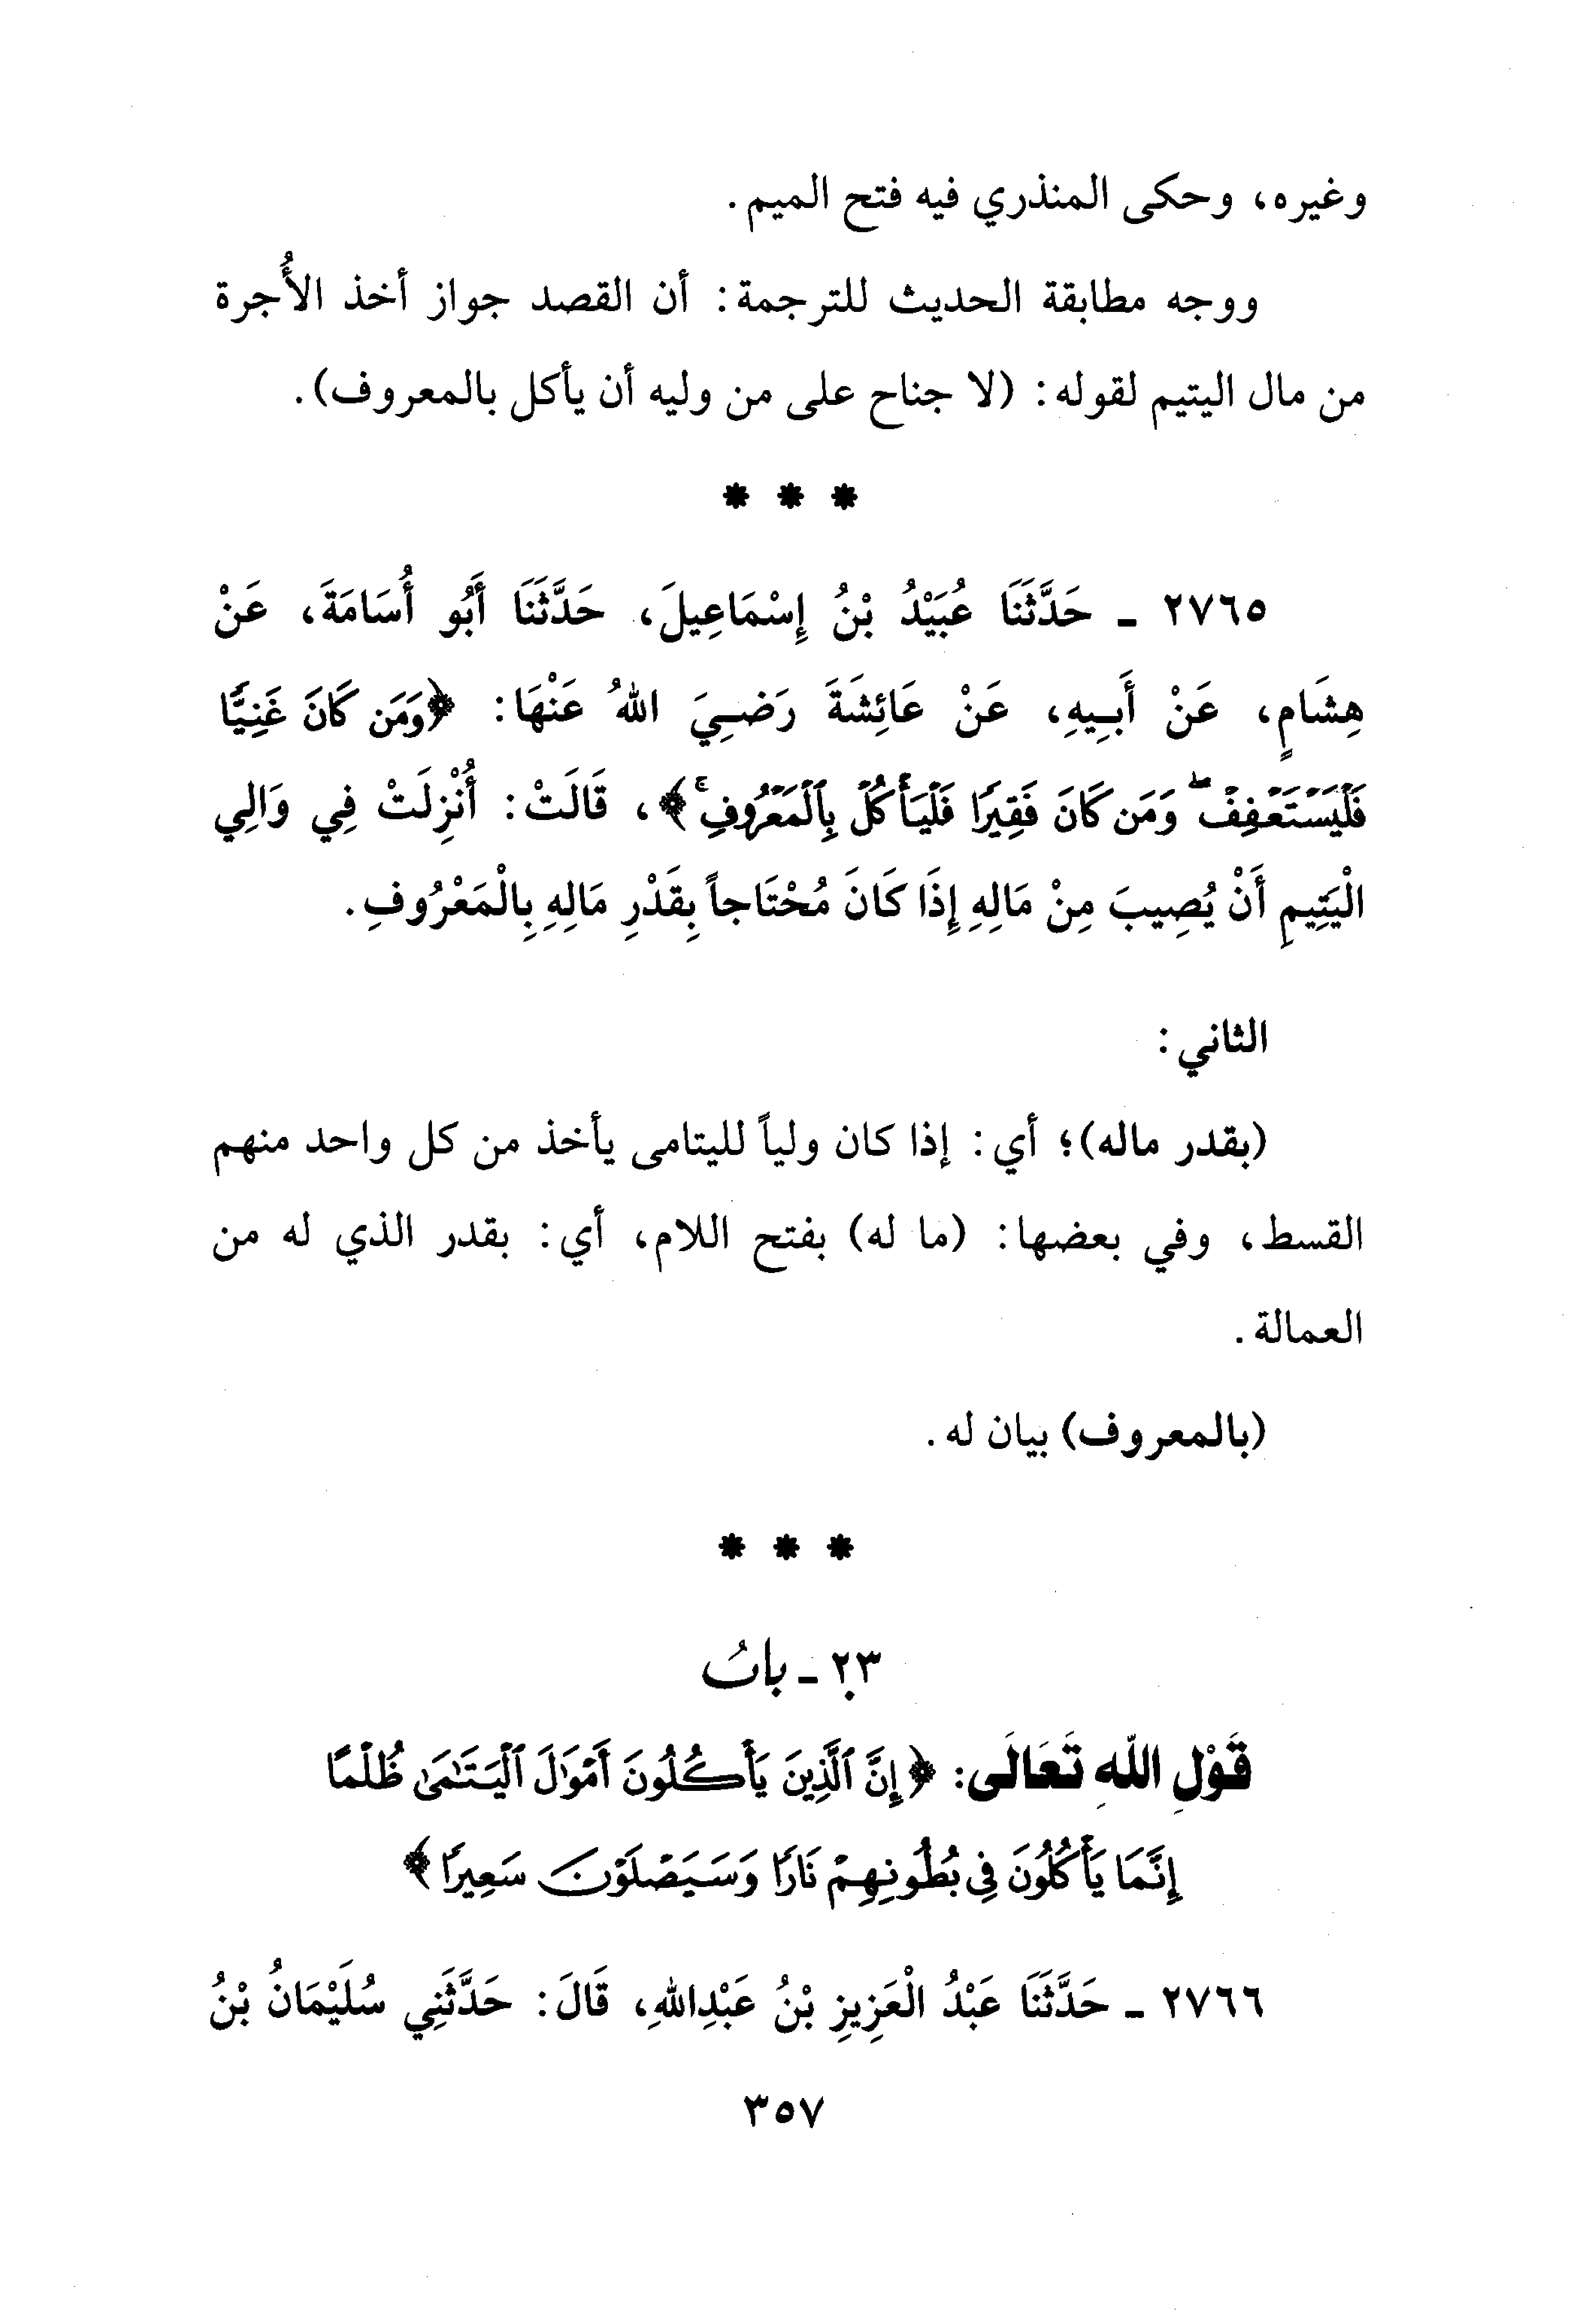 وغيره، وحكى المنذري فيه فتح الميم.
ووجه مطابقة الحديث للترجمة: أن القصد جواز أخذ الأُجرة
من مال اليتيم لقوله: (لا جناح على من وليه أن يأكل بالمعروف).
* * *
٢٧٦٥ - حَدَّثَنَا عُبَيْدُ بْنُ إِسْمَاعِيلَ، حَدَّثَنَا أَبُو أُسَامَةَ، عَنْ
هِشَامٍ، عَنْ أَبِيهِ، عَنْ عَائِشَةَ رَضِيَ اللهُ عَنْهَا: ﴿وَمَن كَانَ غَنِيًّا
فَلْيَسْتَعْفِفْ ۖ وَمَن كَانَ فَقِيرًا فَلْيَأْكُلْ بِٱلْمَعْرُوفِ ۚ﴾، قَالَتْ: أُنْزِلَتْ فِي وَالِي
الْيَتِيمِ أَنْ يُصِيبَ مِنْ مَالِهِ إِذَا كَانَ مُحْتَاجاً بِقَدْرِ مَالِهِ بِالْمَعْرُوفِ.
الثاني:
(بقدر ماله)؛ أي: إذا كان ولياً لليتامى يأخذ من كل واحد منهم
القسط، وفي بعضها: (ما له) بفتح اللام، أي: بقدر الذي له من
العمالة.
(بالمعروف) بيان له.
* * *
٢٣ - بابُ
قَوْلِ اللَّهِ تَعَالَى: ﴿إِنَّ ٱلَّذِينَ يَأْكُلُونَ أَمْوَٰلَ ٱلْيَتَٰمَىٰ ظُلْمًا
إِنَّمَا يَأْكُلُونَ فِي بُطُونِهِمْ نَارًا وَسَيَصْلَوْنَ سَعِيرًا﴾
٢٧٦٦ - حَدَّثَنَا عَبْدُ الْعَزِيزِ بْنُ عَبْدِاللهِ، قَالَ: حَدَّثَنِي سُلَيْمَانُ بْنُ
٣٥٧